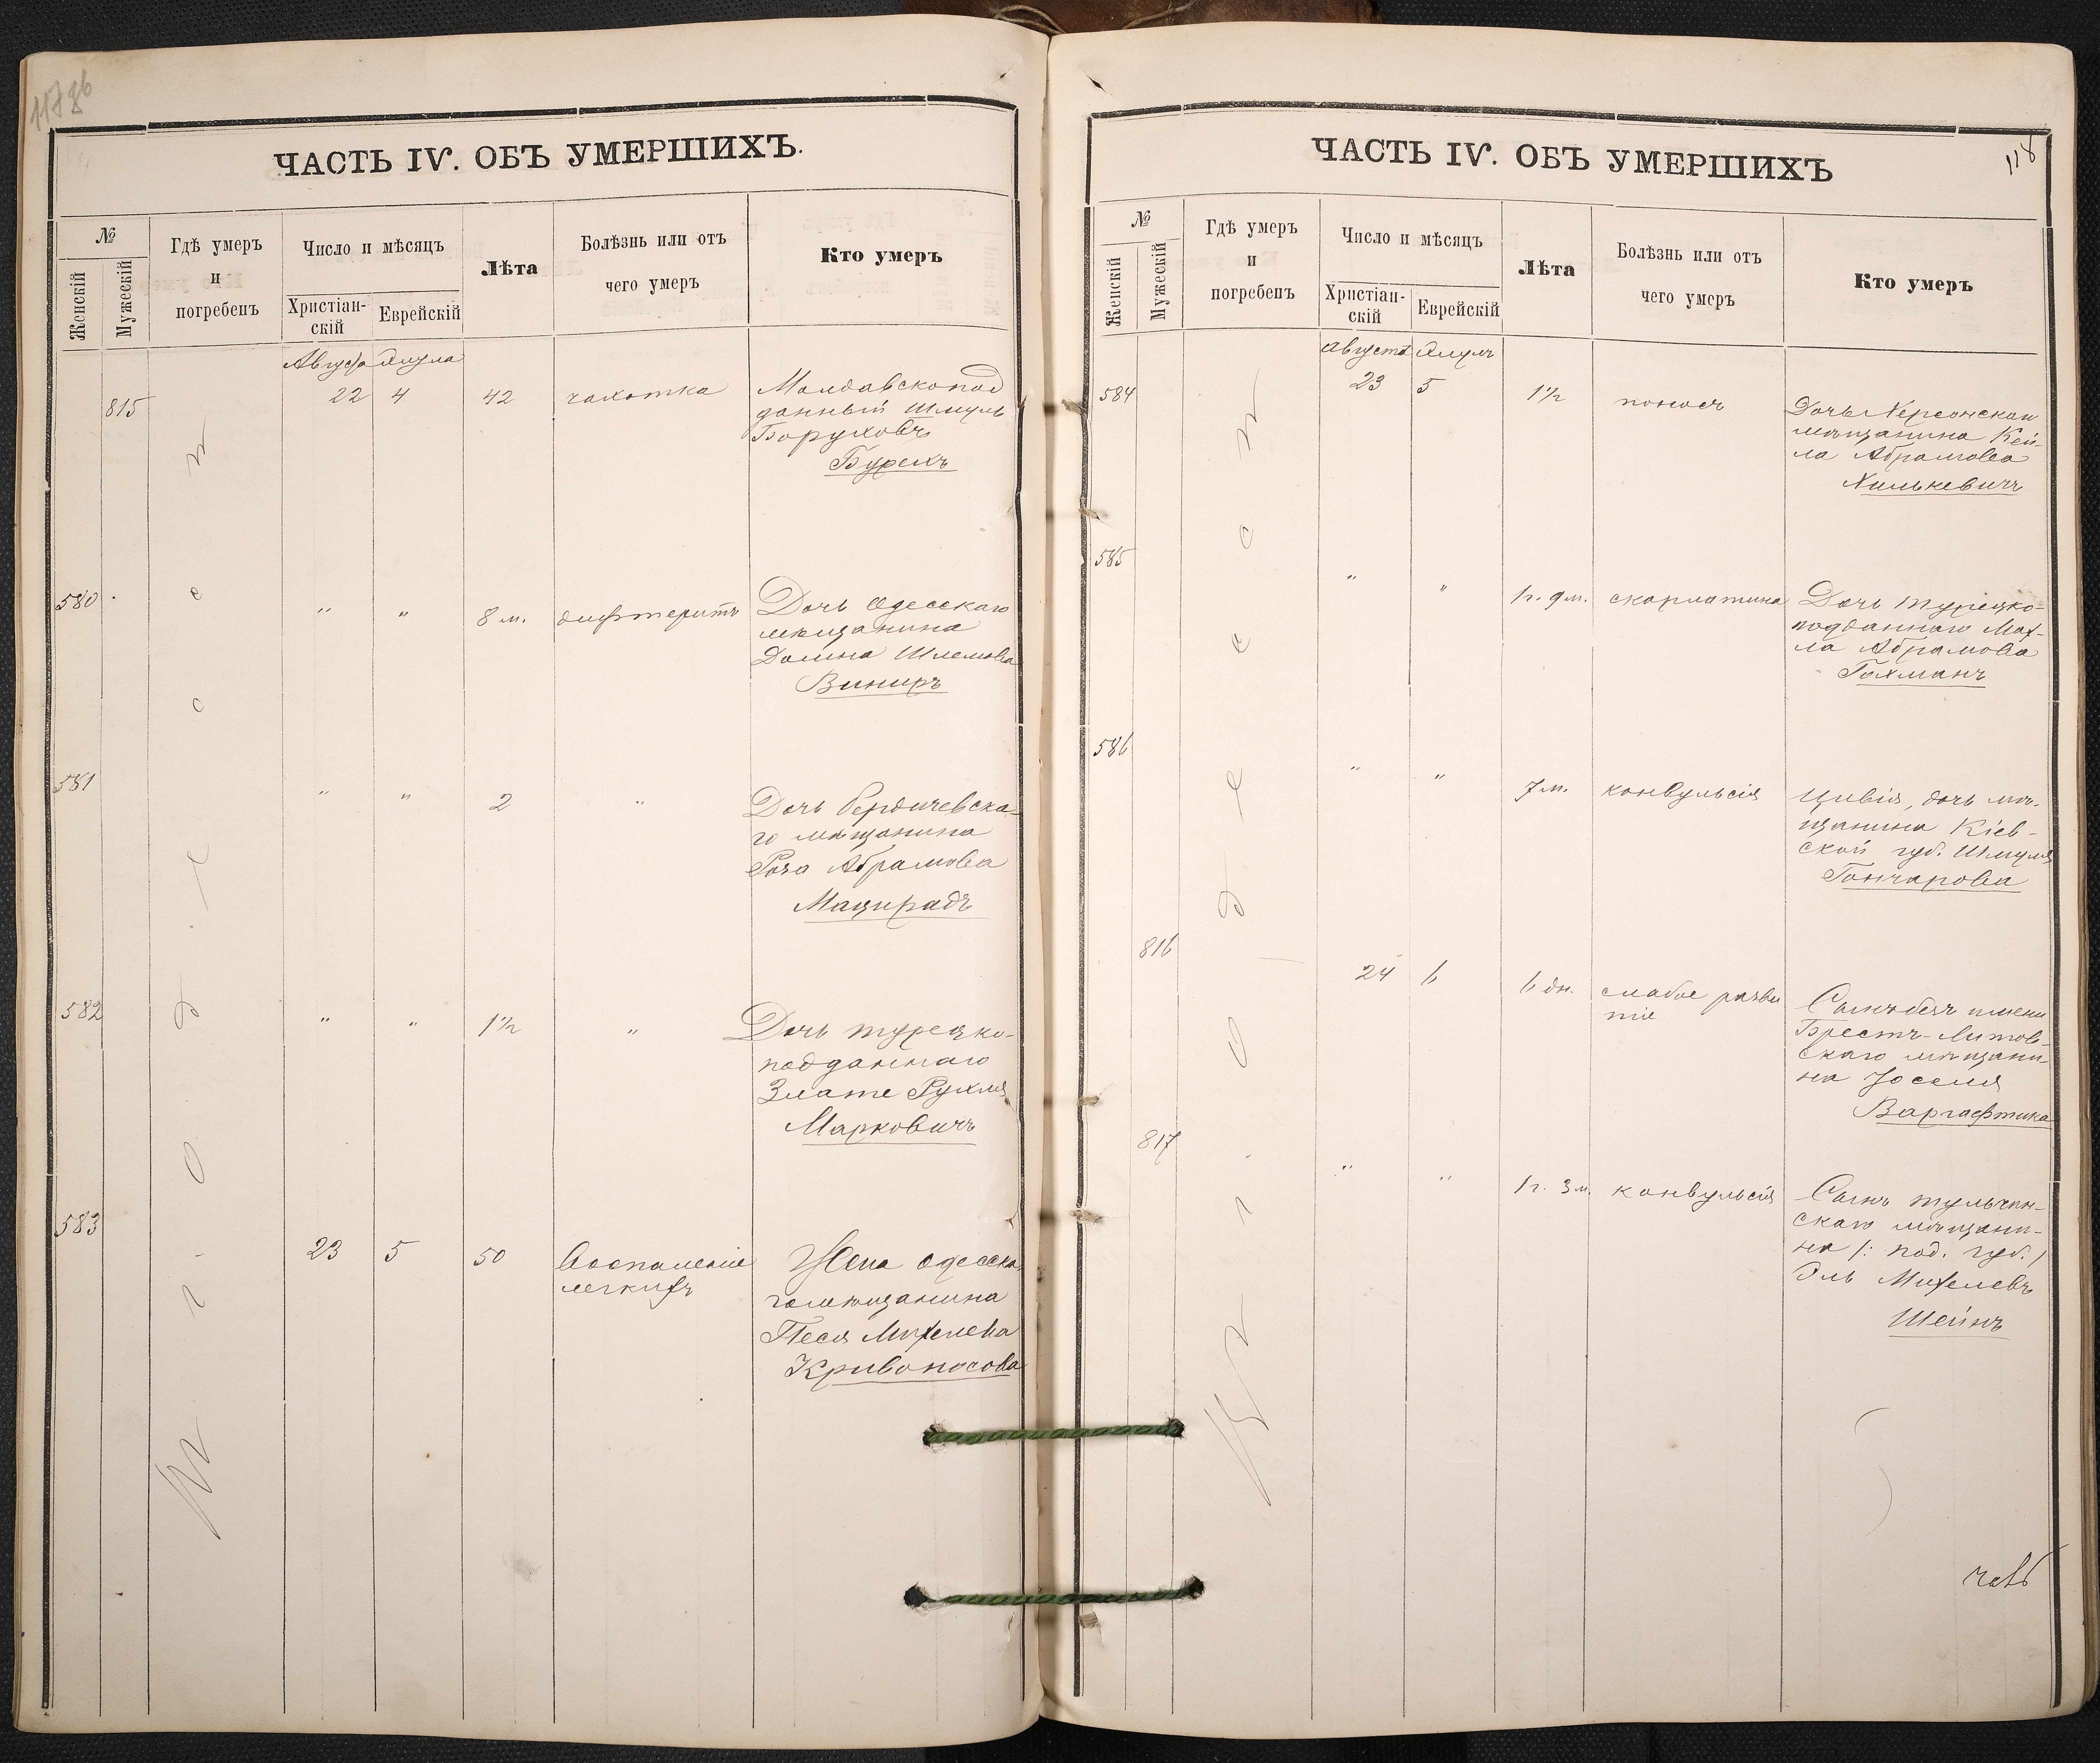 117 об
ЧАСТЬ IV. ОБЪ УМЕРШИХЪ.
№
Женскій
Мужескій
Гдѣ умеръ
и
погребенъ
Число и мѣсяцъ
Христіан-
скій
Еврейскій
Лѣта
Болѣзнь или отъ
чего умеръ
Кто умеръ
Августа Элула
815 22 4 42 чахотка Молдавскопод
данный Шмуль
Боруховъ
Бурехъ
580 " " 8 м. дифтеритъ Дочь Одесскаго
мѣщанина
Шлемова
Виниръ
581 " " 2 " Дочь Бердичевска-
го мѣщанина
Роза Абрамова
Мацирадъ
582 " " 1½ " Дочь турецко-
подданнаго
Злате Рухля
Марковичъ
583 23 5 50 Воспаленіе Жена одесска-
легкихъ
го мѣщанина
Песя Михелева
Кривоносова
въ г. Одессѣ
ЧАСТЬ IV. ОБЪ УМЕРШИХЪ
118
№
Женскій
Мужескій
Гдѣ умеръ
и
погребенъ
Число и мѣсяцъ
Христіан-
скій
Еврейскій
Лѣта
Болѣзнь или отъ
чего умеръ
Кто умеръ
Августа Элулъ
584 23 5 1½ поносъ Дочь Херсонскаго
мѣщанина Кей-
ла Абрамова
Хилькевичъ
585 " " 1 г. 9 м. скарлатина Дочь турецко-
подданнаго Мах-
ла Абрамова
Гохманъ
586 " " 7 м. конвульсія Цивія, дочь мѣ-
щанина Кіев-
ской губ. Шмуля
Гончарова
816 24 6 6 дн. слабое разви
тіе
Сынъ безъ имени
Брестъ-Литов-
скаго мѣщани-
на Іоселя
Варгафтика
817 " " 1 г. 3 м. конвульсія Сынъ тульчин-
скаго мѣщани-
на /: под. губ. /
Эль Михелевъ
Шейнъ
въ г. Одессѣ